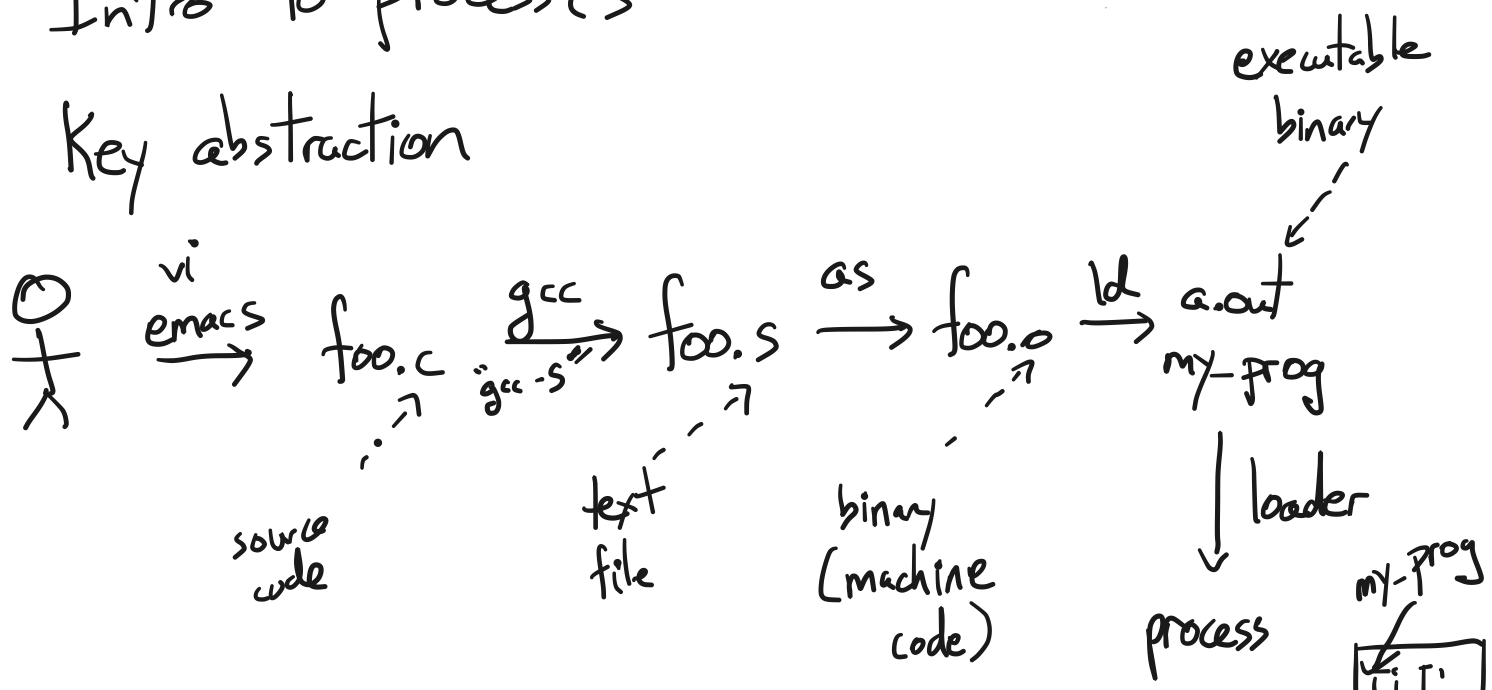 Intro to processes
Key abstraction
executable
binary
vi
emacs
foo.c
gcc
"gcc -S"
foo.s
as
foo.o
ld
a.out
my-prog
source
code
text
file
binary
(machine
code)
loader
process
my-prog